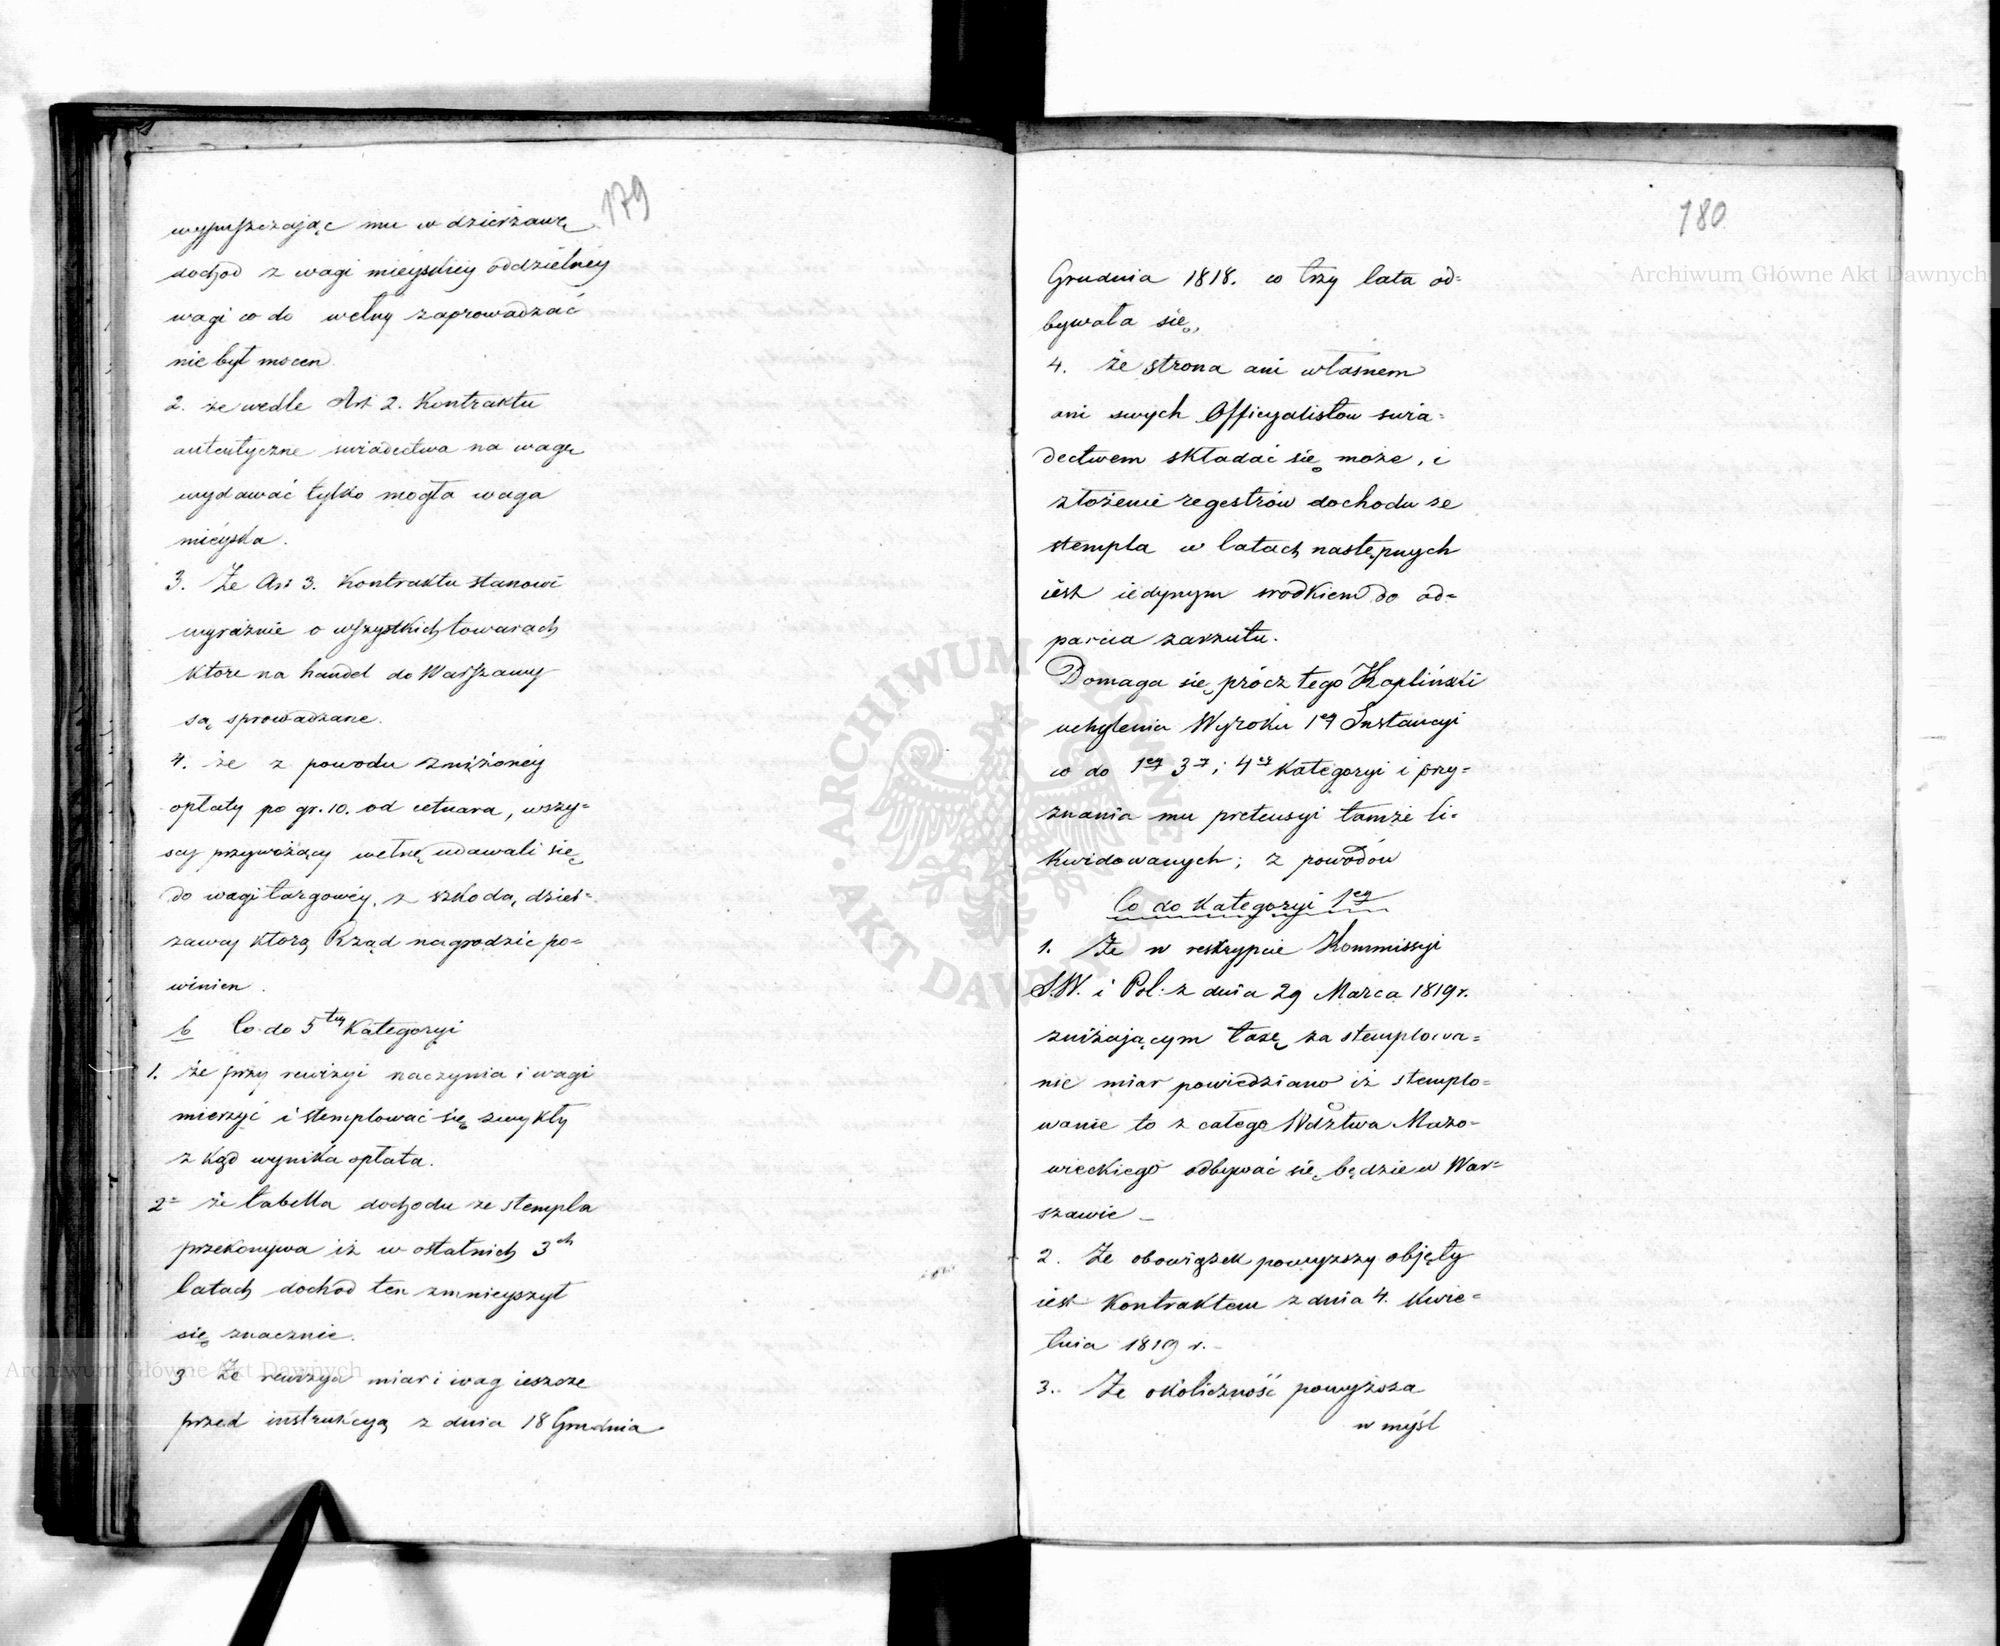 179
wypuszczając mu w dzierżawę
dochod z wagi mieyskiey oddzielnéy
wagi co do wełny zaprowadzać
nie był mocen
2. że wedle Art 2. Kontraktu
autentyczne swiadectwa na wagę
wydawać tylko mogła waga
miéyska.
3. Że Art 3. Kontraktu stanowi
wyraznie o wszystkich towarach
ktore na handel do Warszawy
są sprowadzane.
4. że z powodu zniżonéy
opłaty po gr. 10. od cetnara, wszy=
scy przywożący wełnę udawali się
do wagi targowéy, z szkodą dzier=
zawcy którą Rząd nagrodzić po=
winien.
b Co do 5tey Kategoryi
1. że przy rewizyi naczynia i wagi
mierzyć i stemplować się zwykły
z kąd wynika opłata.
2= że tabella dochodu ze stempla
przekonywa iż w ostatnich 3ch
latach dochod ten zmnieyszył
się znacznie.
3 Że rewizya miar i wag ieszcze
przed instrukcyą z dnia 18 Grudnia
180
Grudnia 1818. co trzy lata od=
bywała się,
4. że strona ani własnem
ani swych Officyalistow swia=
dectwem składać się może, i
złożenie regestrów dochodu ze
stempla w latach następnych
iest iedynym srodkiem do od=
parcia zarzutu.
Domaga się prócz tego Kapliński
uchylenia Wyroku 1ey Instancyi
co do 1ey 3ey i 4ey Kategoryi i przy=
znania mu pretensyi tamże li=
kwidowanych; z powodów
Co do Kategoryi 1ey
1. Że w reskrypcie Kommissyi
S.W. i Pol: z dnia 29 Marca 1819 r.
zniżającym taxę za stemplowa=
nie miar powiedziano iż stemplo=
wanie to z całego Wdztwa Mazo=
wieckiego odbywać się będzie w War=
szawie _
2. Że obowiązek powyzszy objęty
iest Kontraktem z dnia 4. Kwie=
tnia 1819 r. -
3. Że okoliczność powyższa
w mysl
Archiwum Główne Akt Dawnych
Archiwum Główne Akt Dawnych
ARCHIWUM GŁÓWNE AKT DAWNYCH